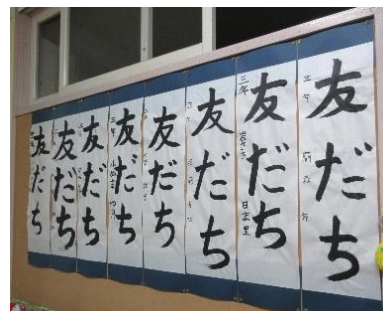 友だち
三年
友だち
三年
友だち
友だち
友だち
三年
友だち
友だち
友だち